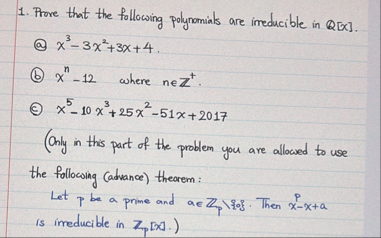 1. Prove that the following polynomials are irreducible in Q[x].
ⓐ x³-3x²+3x+4.
ⓑ xⁿ-12 where n∈ℤ⁺.
ⓒ x⁵-10x³+25x²-51x+2017
(Only in this part of the problem you are allowed to use
the following (advance) theorem:
Let p be a prime and a∈ℤₚ\{0}. Then xᵖ-x+a
is irreducible in ℤₚ[x].)